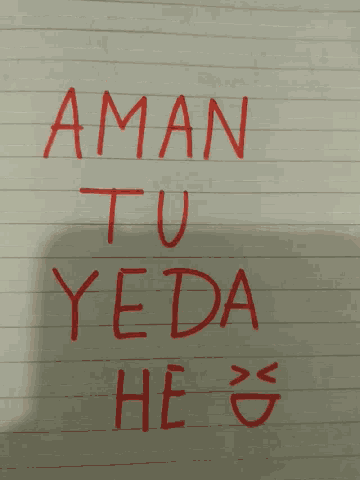 AMAN
TU
YEDA
HE